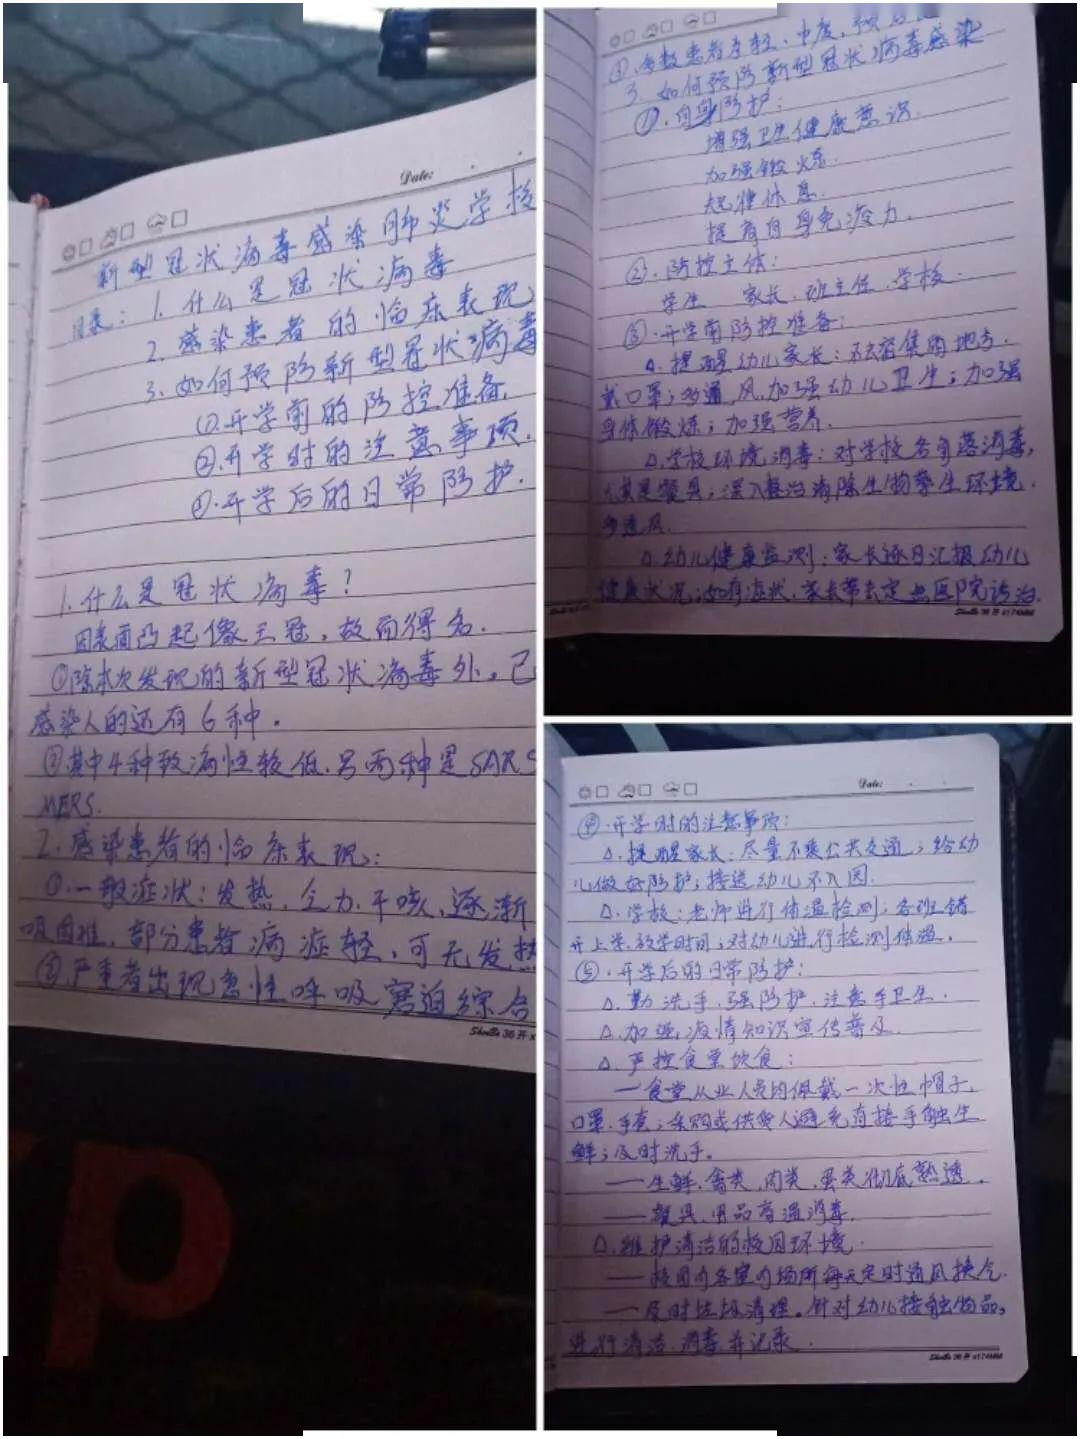 Date:
新型冠状病毒感染肺炎学校
目录：1. 什么是冠状病毒
2. 感染患者的临床表现
3. 如何预防新型冠状病毒
①.开学前的防控准备.
②.开学时的注意事项.
③.开学后的日常防护.
1. 什么是冠状病毒？
因表面凸起像王冠，故而得名.
①除本次发现的新型冠状病毒外，已
感染人的还有6种。
②其中4种致病性较低.另两种是SARS
MERS.
2. 感染患者的临床表现：
①.一般症状：发热，乏力.干咳，逐渐
吸困难，部分患者病症轻，可无发热
②.严重者出现急性呼吸窘迫综合
Shulle 36开
③.多数患者为轻、中度，预后
3. 如何预防新型冠状病毒感染
①.自身防护：
增强卫生健康意识.
加强锻炼.
规律休息.
提高自身免疫力.
②.防控主体：
学生 家长.班主任.学校.
③.开学前防控准备：
△.提醒幼儿家长：不去密集的地方.
戴口罩；多通风.加强幼儿卫生；加强
身体锻炼；加强营养.
△.学校环境消毒：对学校各角落消毒，
尤其是餐具；深入整治清除生物孳生环境.
多通风.
△.幼儿健康监测：家长逐日汇报幼儿
健康状况；如有症状.家长带去定点医院诊治.
Shulle 36开 #174666
Date:
④.开学时的注意事项：
△.提醒家长：尽量不乘公共交通；给幼
儿做好防护；接送幼儿不入园.
△.学校：老师进行体温检测；各班错
开上学.放学时间；对幼儿进行检测体温。
⑤.开学后的日常防护：
△.勤洗手.强防护.注意手卫生.
△.加强疫情知识宣传普及.
△.严控食堂饮食：
—食堂从业人员均佩戴一次性帽子，
口罩.手套；采购或供货人避免直接手触生
鲜；及时洗手。
—生鲜.禽类.肉类.蛋类彻底熟透。
—餐具.用品高温消毒.
△.维护清洁的校园环境.
—校园内各室内场所每天定时通风换气.
—及时垃圾清理。针对幼儿接触物品，
进行清洁.消毒并记录.
Shulle 36开 #174666